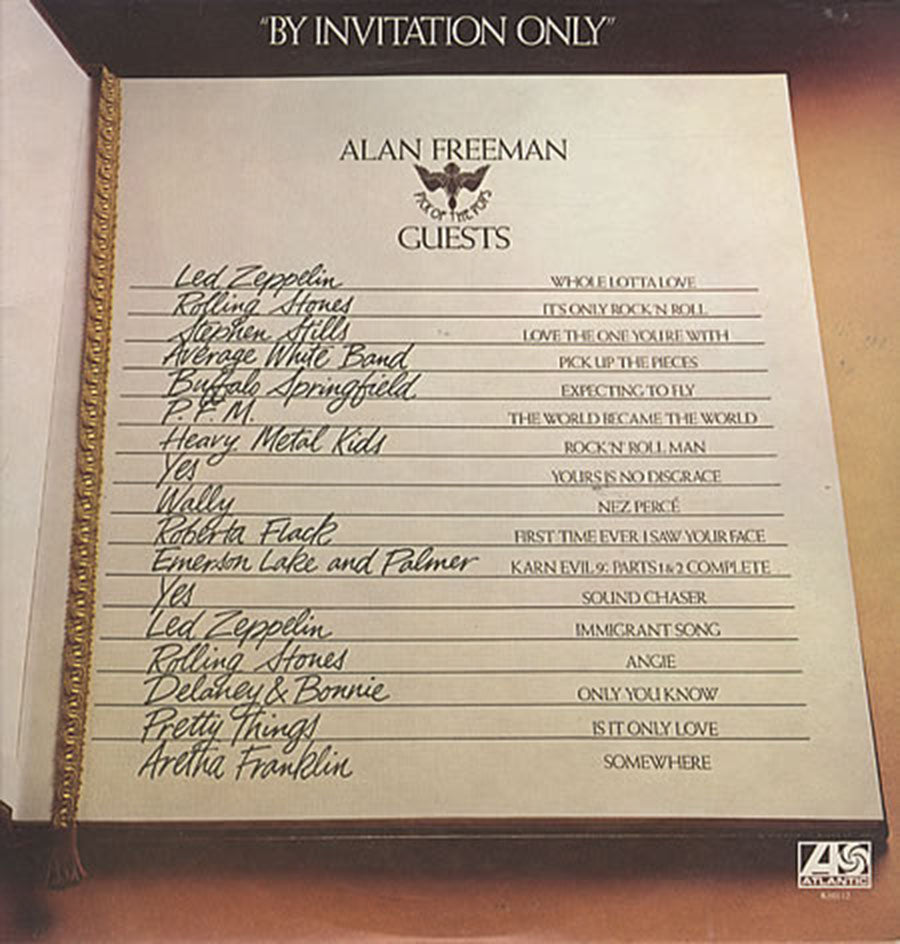 "BY INVITATION ONLY"
ALAN FREEMAN
PICK OF THE POPS
GUESTS
Led Zeppelin WHOLE LOTTA LOVE
Rolling Stones IT'S ONLY ROCK 'N ROLL
Stephen Stills LOVE THE ONE YOU'RE WITH
Average White Band PICK UP THE PIECES
Buffalo Springfield EXPECTING TO FLY
P.F.M. THE WORLD BECAME THE WORLD
Heavy Metal Kids ROCK 'N' ROLL MAN
Yes YOURS IS NO DISGRACE
Wally NEZ PERCÉ
Roberta Flack FIRST TIME EVER I SAW YOUR FACE
Emerson Lake and Palmer KARN EVIL 9: PARTS 1 & 2 COMPLETE
Yes SOUND CHASER
Led Zeppelin IMMIGRANT SONG
Rolling Stones ANGIE
Delaney & Bonnie ONLY YOU KNOW
Pretty Things IS IT ONLY LOVE
Aretha Franklin SOMEWHERE
ATLANTIC
K60112